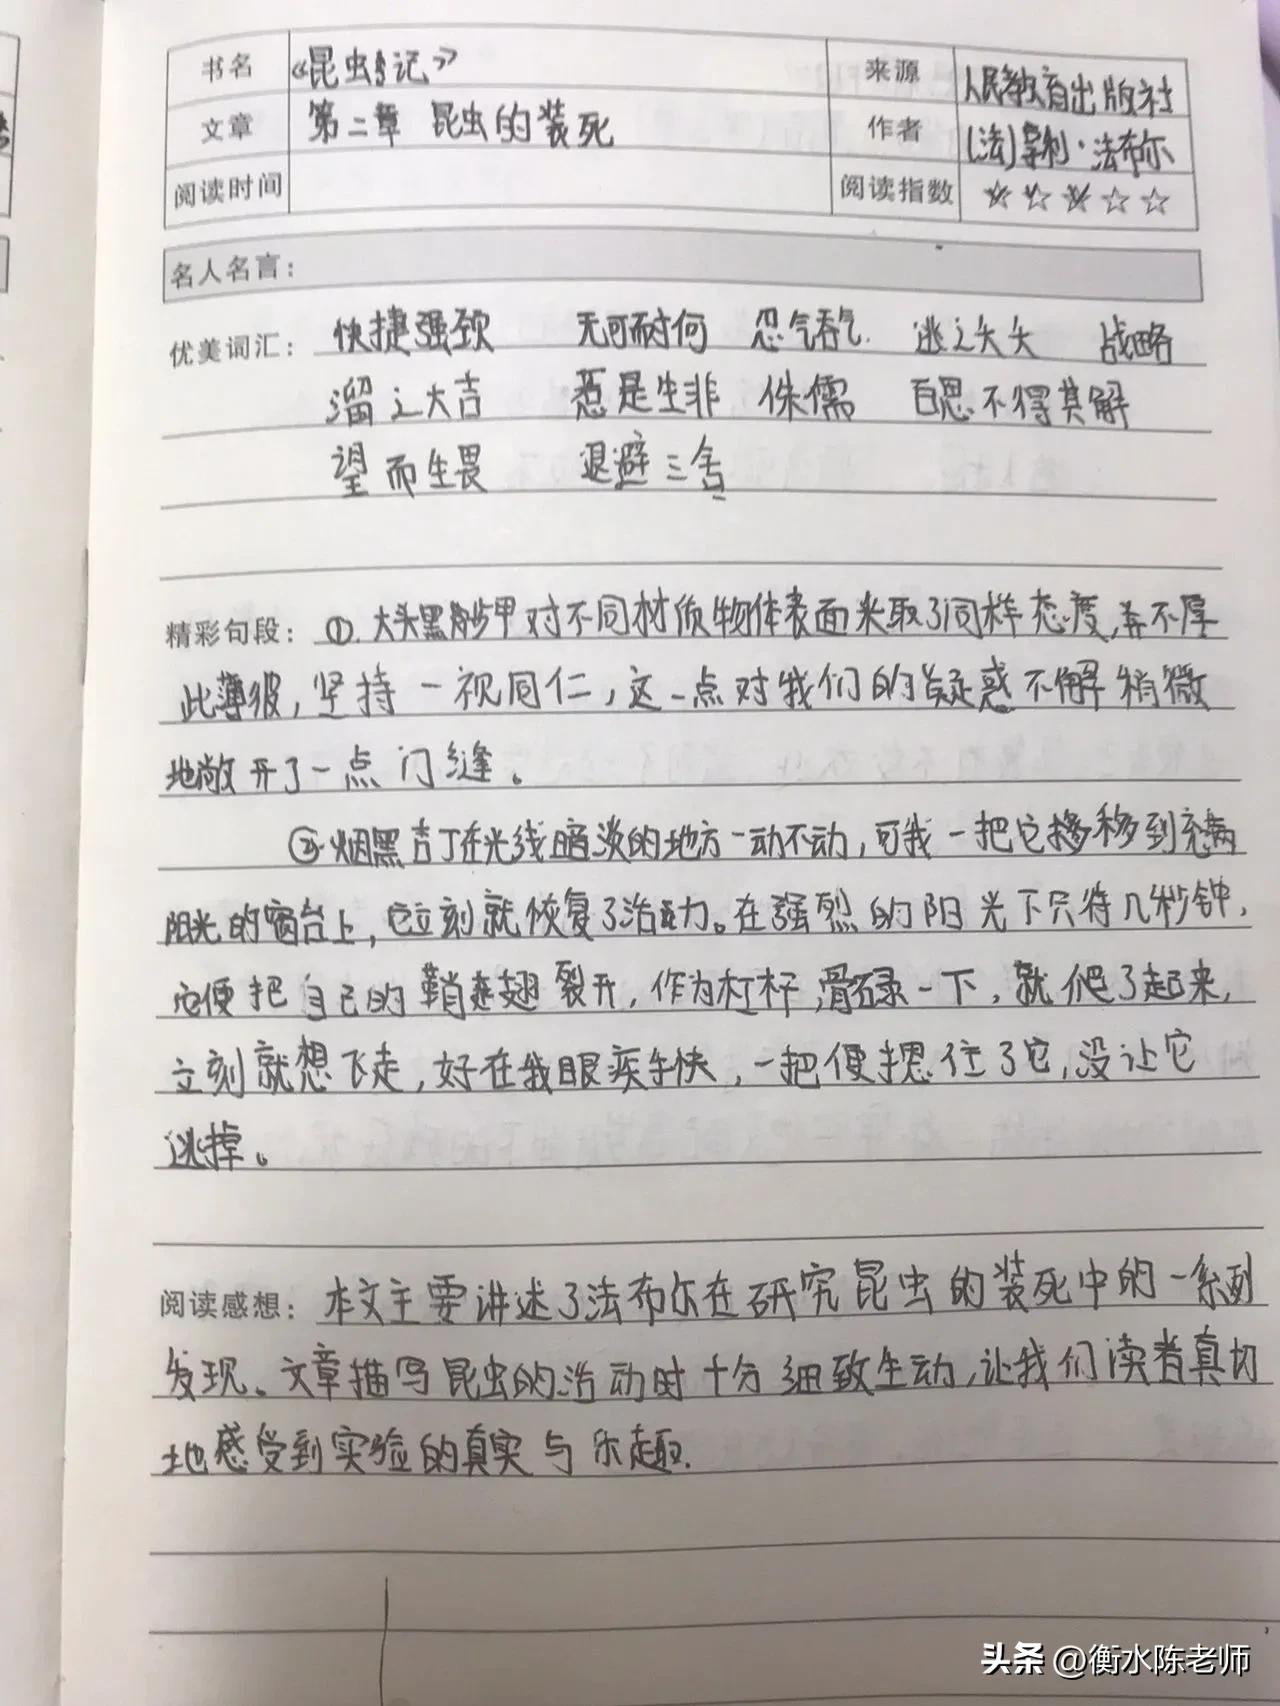 书名 《昆虫记》 来源 人民教育出版社
文章 第二章 昆虫的装死 作者 (法)亨利·法布尔
阅读时间 阅读指数 ☆☆☆☆☆
名人名言：
优美词汇： 快捷强劲 无可耐何 忍气吞气 逃之夭夭 战略
溜之大吉 惹是生非 侏儒 百思不得其解
望而生畏 退避三舍
精彩句段： ①.大头黑步甲对不同材质物体表面采取了同样态度,并不厚
此薄彼,坚持一视同仁,这一点对我们的疑惑不解稍微
地敞开了一点门缝。
②烟黑吉丁在光线暗淡的地方一动不动,可我一把它移到充满
阳光的窗台上,它立刻就恢复了活力。在强烈的阳光下只待几秒钟,
它便把自己的鞘翅裂开,作为杠杆,骨碌一下,就爬了起来,
立刻就想飞走,好在我眼疾手快,一把便摁住了它,没让它
逃掉。
阅读感想： 本文主要讲述了法布尔在研究昆虫的装死中的一系列
发现。文章描写昆虫的活动时十分细致生动,让我们读者真切
地感受到实验的真实与乐趣.
头条 @衡水陈老师